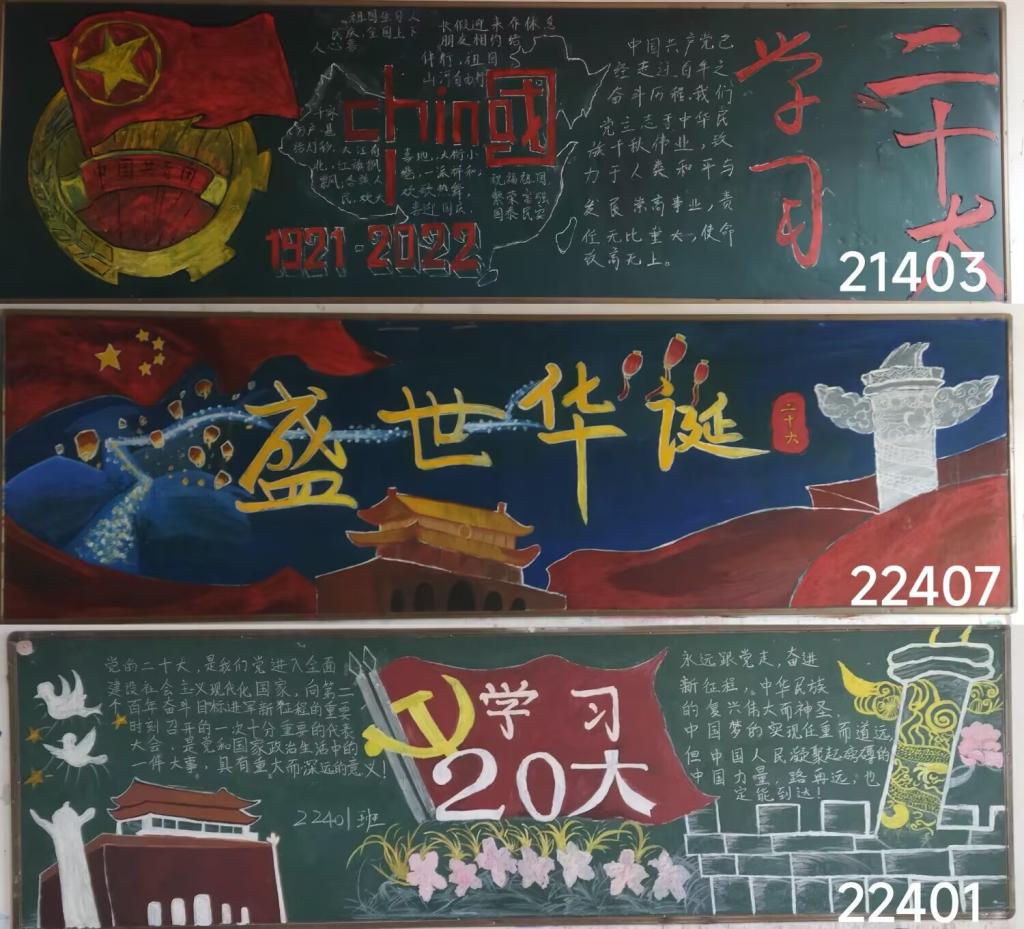 祖国生日人
民庆,全国上下
人心喜
长假迎来作休息
朋友相约结
伴行,祖国
山河自由行
china
國
大江南
北,红旗飘
祝福祖国
繁荣富强
国泰民安
1921-2022
中国共青团
中国共产党已
经走过百年之
奋斗历程.我们
党立志于中华民
族千秋伟业,致
力于人类和平与
发展崇高事业,责
任无比重大,使命
改高无上。
学习
二十大
21403
盛世华诞
二十六
22407
党的二十大,是我们党进入全面
建设社会主义现代化国家,向第二
个百年奋斗目标进军新征程的重要
时刻召开的一次十分重要的代表
大会,是党和国家政治生活中的
一件大事,具有重大而深远的意义!
22401班
学习
20大
永远跟党走,奋进
新征程,中华民族
的复兴伟大而神圣,
中国梦的实现任重而道远,
但中国人民凝聚起磅礴的
中国力量,路再远,也
定能到达!
22401